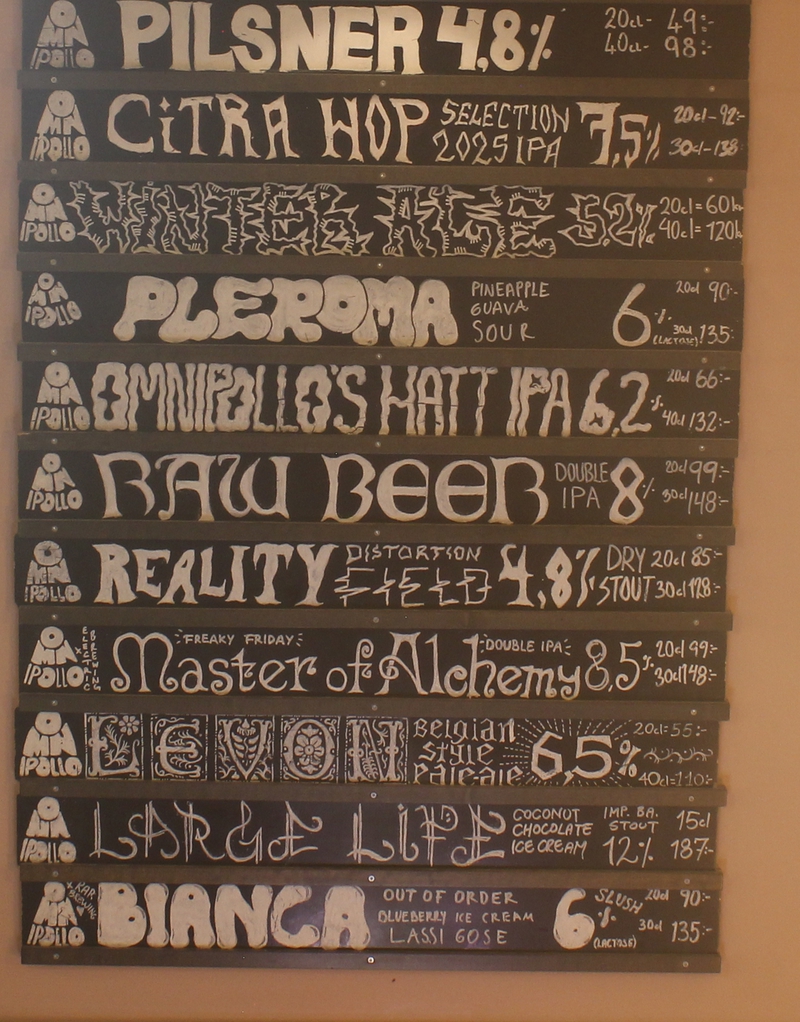 OMNIPOLLO PILSNER 4,8% 20cl- 49:-
40cl- 98:-
OMNIPOLLO CiTRA HOP SELECTION 2025 IPA 7,5% 20cl-92:-
30cl-138
OMNIPOLLO WINTER ALE 5,2% 20cl=60kr
40cl=120k
OMNIPOLLO PLEROMA PINEAPPLE GUAVA SOUR 6% (LACTOSE) 20cl 90:-
30cl 135:-
OMNIPOLLO OMNIPOLLO'S HATT IPA 6,2% 20cl 66:-
40cl 132:-
OMNIPOLLO RAW BEER DOUBLE IPA 8% 20cl 99:-
30cl 148:-
OMNIPOLLO REALITY DISTORTION FIELD 4,8% DRY STOUT 20cl 85:-
30cl 128:-
OMNIPOLLO x ELECTRIC BREWING FREAKY FRIDAY: DOUBLE IPA
Master of Alchemy 8,5% 20cl 99:-
30cl 148:-
OMNIPOLLO LEVON Belgian style Pale-ale 6,5% 20cl=55:-
40cl=110:-
OMNIPOLLO LARGE LiFE COCONUT CHOCOLATE ICE CREAM IMP. BA. STOUT 12% 15cl
187:-
OMNIPOLLO x KAR BREWING BIANCA OUT OF ORDER BLUEBERRY ICE CREAM LASSI GOSE 6% (LACTOSE) SLUSH 20cl 90:-
30cl 135:-